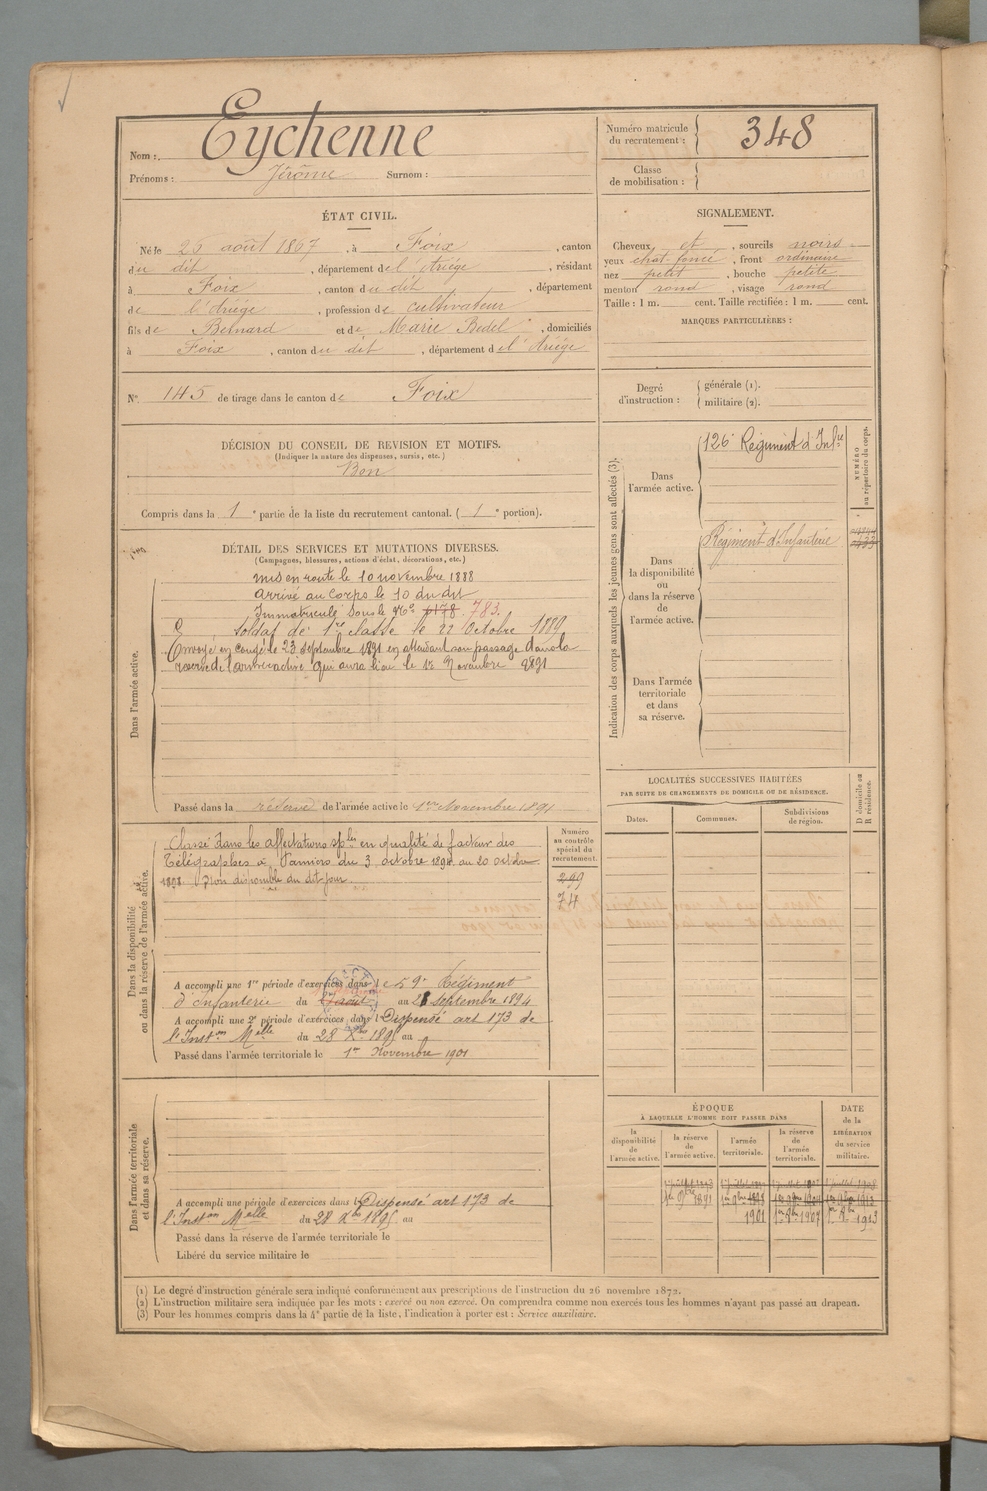 Nom : Eychenne
Prénoms : Jérôme Surnom :
Numéro matricule
du recrutement : 348
Classe
de mobilisation :
ÉTAT CIVIL.
Né le 25 août 1867, à Foix, canton
du dit, département de l'Ariége, résidant
à Foix, canton du dit, département
de l'Ariége, profession de cultivateur
fils de Bernard et de Marie Bedel, domiciliés
à Foix, canton du dit, département de l'Ariége
N° 145 de tirage dans le canton de Foix
SIGNALEMENT.
Cheveux et, sourcils noirs
yeux chat. foncé, front ordinaire
nez petit, bouche petite
menton rond, visage rond
Taille : 1 m. cent. Taille rectifiée : 1 m. cent.
MARQUES PARTICULIÈRES :
Degré
d'instruction :
générale (1).
militaire (2).
DÉCISION DU CONSEIL DE REVISION ET MOTIFS.
(Indiquer la nature des dispenses, sursis, etc.)
Bon
Compris dans la 1e partie de la liste du recrutement cantonal. (1e portion).
DÉTAIL DES SERVICES ET MUTATIONS DIVERSES.
(Campagnes, blessures, actions d'éclat, décorations, etc.)
Dans l'armée active.
mis en route le 10 novembre 1888
arrivé au corps le 10 du dit
Immatriculé sous le N° 6178. 783.
Soldat de 1re classe le 22 Octobre 1889
Envoyé en congé le 23 septembre 1891 en attendant son passage dans la
réserve de l'armée active qui aura lieu le 1er Novembre 1891
Passé dans la réserve de l'armée active le 1er Novembre 1891
Indication des corps auxquels les jeunes gens sont affectés (3).
Dans
l'armée active.
126e Régiment d'Infie
NUMÉRO
au répertoire du corps.
Dans
la disponibilité
ou
dans la réserve
de
l'armée active.
Régiment d'Infanterie
Dans l'armée
territoriale
et dans
sa réserve.
Dans la disponibilité
ou dans la réserve de l'armée active.
Numéro
au contrôle
spécial du
recrutement.
Classé dans les affectations sples en qualité de facteur des
Télégraphes à Pamiers du 3 octobre 1890 au 20 octobre
1898. Non disponible du dit jour
299
74
A accompli une 1re période d'exercices dans le 59e Régiment
d'Infanterie du 27 août au 28 septembre 1894
A accompli une 2e période d'exercices dans l Dispensé art 173 de
l'Inston Melle du 28 Xbre 1895 au
Passé dans l'armée territoriale le 1er Novembre 1901
LOCALITÉS SUCCESSIVES HABITÉES
PAR SUITE DE CHANGEMENTS DE DOMICILE OU DE RÉSIDENCE.
Dates.
Communes.
Subdivisions
de région.
D domicile ou
R résidence.
Dans l'armée territoriale
et dans sa réserve.
A accompli une période d'exercices dans l Dispensé art 173 de
l'Inston Melle du 28 Xbre 1895 au
Passé dans la réserve de l'armée territoriale le
Libéré du service militaire le
ÉPOQUE
À LAQUELLE L'HOMME DOIT PASSER DANS
DATE
de la
LIBÉRATION
du service
militaire.
la
disponibilité
de
l'armée active.
la réserve
de
l'armée active.
l'armée
territoriale.
la réserve
de
l'armée
territoriale.
1er 9bre 1891
1901
1er 9bre 1907
1er 9bre 1913
(1) Le degré d'instruction générale sera indiqué conformément aux prescriptions de l'instruction du 26 novembre 1872.
(2) L'instruction militaire sera indiquée par les mots : exercé ou non exercé. On comprendra comme non exercés tous les hommes n'ayant pas passé au drapeau.
(3) Pour les hommes compris dans la 4e partie de la liste, l'indication à porter est : Service auxiliaire.